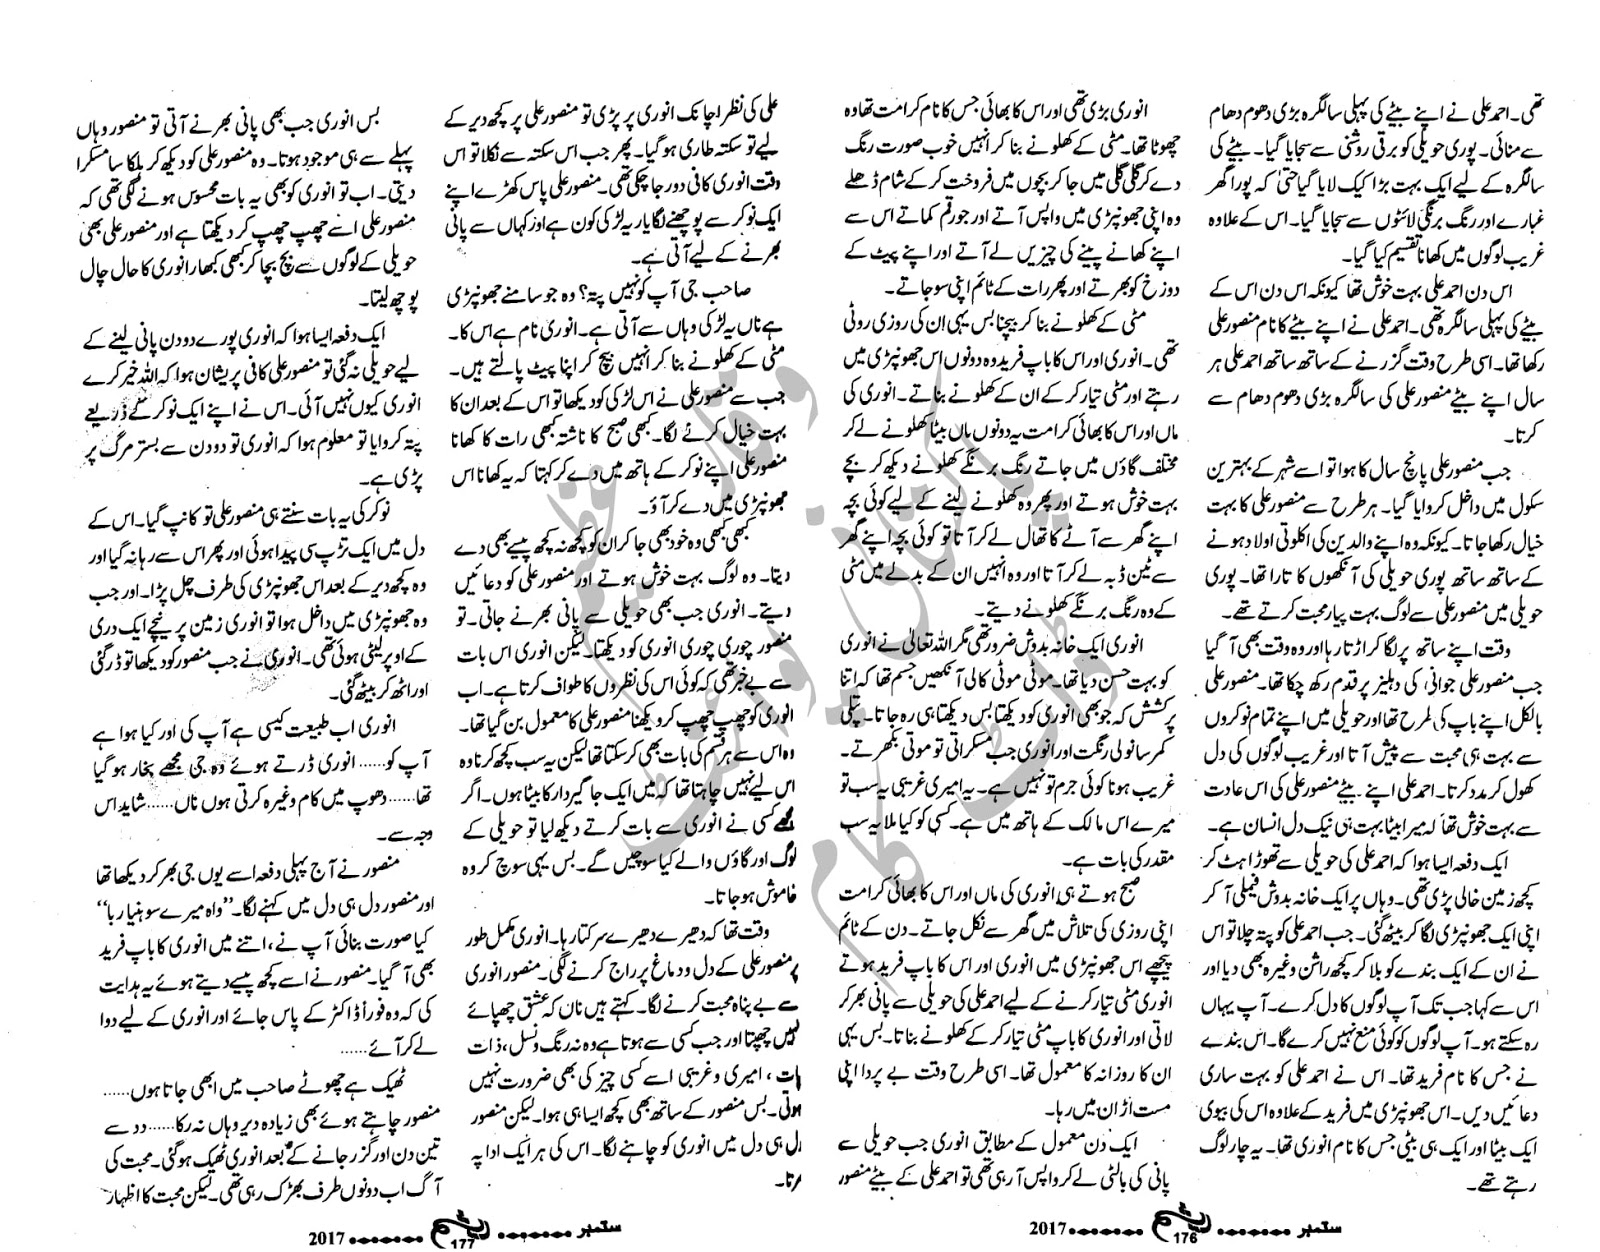 تھی۔ احمد علی نے اپنے بیٹے کی پہلی سالگرہ بڑی دھوم دھام
سے منائی۔ پوری حویلی کو برقی روشنی سے سجایا گیا۔ بیٹے کی
سالگرہ کے لیے ایک بہت بڑا کیک لایا گیا حتیٰ کہ پورا گھر
غبارے اور رنگ برنگی لائٹوں سے سجایا گیا۔ اس کے علاوہ
غریب لوگوں میں کھانا تقسیم کیا گیا۔
اس دن احمد علی بہت خوش تھا کیونکہ اس دن اس کے
بیٹے کی پہلی سالگرہ تھی۔ احمد علی نے اپنے بیٹے کا نام منصور علی
رکھا تھا۔ اسی طرح وقت گزرنے کے ساتھ ساتھ احمد علی ہر
سال اپنے بیٹے منصور علی کی سالگرہ بڑی دھوم دھام سے
کرتا۔
جب منصور علی پانچ سال کا ہوا تو اسے شہر کے بہترین
سکول میں داخل کروایا گیا۔ ہر طرح سے منصور علی کا بہت
خیال رکھا جاتا۔ کیونکہ وہ اپنے والدین کی اکلوتی اولاد ہونے
کے ساتھ ساتھ پوری حویلی کی آنکھوں کا تارا تھا۔ پوری
حویلی میں منصور علی سے لوگ بہت پیار محبت کرتے تھے۔
وقت اپنے ساتھ پر لگا کر اڑتا رہا اور وہ وقت بھی آ گیا
جب منصور علی جوانی کی دہلیز پر قدم رکھ چکا تھا۔ منصور علی
بالکل اپنے باپ کی طرح تھا اور حویلی میں اپنے تمام نوکروں
سے بہت ہی محبت سے پیش آتا اور غریب لوگوں کی دل
کھول کر مدد کرتا۔ احمد علی اپنے بیٹے منصور علی کی اس عادت
سے بہت خوش تھا کہ میرا بیٹا بہت ہی نیک دل انسان ہے۔
ایک دفعہ ایسا ہوا کہ احمد علی کی حویلی سے تھوڑا ہٹ کر
کچھ زمین خالی پڑی تھی۔ وہاں پر ایک خانہ بدوش فیملی آ کر
اپنی ایک جھونپڑی لگا کر بیٹھ گئی۔ جب احمد علی کو پتہ چلا تو اس
نے ان کے ایک بندے کو بلا کر کچھ راشن وغیرہ بھی دیا اور
اس سے کہا جب تک آپ لوگوں کا دل کرے۔ آپ یہاں
رہ سکتے ہو۔ آپ لوگوں کو کوئی منع نہیں کرے گا۔ اس بندے
نے جس کا نام فرید تھا۔ اس نے احمد علی کو بہت ساری
دعائیں دیں۔ اس جھونپڑی میں فرید کے علاوہ اس کی بیوی
ایک بیٹا اور ایک ہی بیٹی جس کا نام انوری تھا۔ یہ چار لوگ
رہتے تھے۔
انوری بڑی تھی اور اس کا بھائی جس کا نام کرامت تھا وہ
چھوٹا تھا۔ مٹی کے کھلونے بنا کر انہیں خوب صورت رنگ
دے کر گلی گلی میں جا کر بچوں میں فروخت کر کے شام ڈھلے
وہ اپنی جھونپڑی میں واپس آتے اور جو رقم کماتے اس سے
اپنے کھانے پینے کی چیزیں لے آتے اور اپنے پیٹ کے
دوزخ کو بھرتے اور پھر رات کے ٹائم اپنی سو جاتے۔
مٹی کے کھلونے بنا کر بیچنا بس یہی ان کی روزی روٹی
تھی۔ انوری اور اس کا باپ فرید وہ دونوں اس جھونپڑی میں
رہتے اور مٹی تیار کر کے ان کے کھلونے بناتے۔ انوری کی
ماں اور اس کا بھائی کرامت یہ دونوں ماں بیٹا کھلونے لے کر
مختلف گاؤں میں جاتے رنگ برنگے کھلونے دیکھ کر بچے
بہت خوش ہوتے اور پھر وہ کھلونے لینے کے لیے کوئی بچہ
اپنے گھر سے آٹے کا تھال لے کر آتا تو کوئی بچہ اپنے گھر
سے ٹین ڈبہ لے کر آتا اور وہ انہیں ان کے بدلے میں مٹی
کے وہ رنگ برنگے کھلونے دیتے۔
انوری ایک خانہ بدوش ضرور تھی مگر اللہ تعالیٰ نے انوری
کو بہت حسن دیا تھا۔ موٹی موٹی کالی آنکھیں جسم تھا کہ اتنا
پرکشش کہ جو بھی انوری کو دیکھتا بس دیکھتا ہی رہ جاتا۔ پتلی
کمر سانولی رنگت اور انوری جب مسکراتی تو موتی بکھرتے۔
غریب ہونا کوئی جرم تو نہیں ہے۔ یہ امیری غریبی یہ سب تو
میرے اس مالک کے ہاتھ میں ہے۔ کسی کو کیا ملا یہ سب
مقدر کی بات ہے۔
صبح ہوتے ہی انوری کی ماں اور اس کا بھائی کرامت
اپنی روزی کی تلاش میں گھر سے نکل جاتے۔ دن کے ٹائم
پیچھے اس جھونپڑی میں انوری اور اس کا باپ فرید ہوتے
انوری مٹی تیار کرنے کے لیے احمد علی کی حویلی سے پانی بھر کر
لاتی اور انوری کا باپ مٹی تیار کر کے کھلونے بناتا۔ بس یہی
ان کا روزانہ کا معمول تھا۔ اسی طرح وقت بے پردا اپنی
مست اڑان میں رہا۔
ایک دن معمول کے مطابق انوری جب حویلی سے
پانی کی بالٹی لے کر واپس آ رہی تھی تو احمد علی کے بیٹے منصور
ستمبر ........ 176 ........ 2017
علی کی نظر اچانک انوری پر پڑی تو منصور علی پر کچھ دیر کے
لیے تو سکتہ طاری ہو گیا۔ پھر جب اس سکتہ سے نکلا تو اس
وقت انوری کافی دور جا چکی تھی۔ منصور علی پاس کھڑے اپنے
ایک نوکر سے پوچھنے لگا یار یہ لڑکی کون ہے اور کہاں سے پانی
بھرنے کے لیے آتی ہے۔
صاحب جی آپ کو نہیں پتہ؟ وہ جو سامنے جھونپڑی
ہے ناں یہ لڑکی وہاں سے آتی ہے۔ انوری نام ہے اس کا۔
مٹی کے کھلونے بنا کر انہیں بیچ کر اپنا پیٹ پالتے ہیں۔
جب سے منصور علی نے اس لڑکی کو دیکھا تو اس کے بعد ان کا
بہت خیال کرنے لگا۔ کبھی صبح کا ناشتہ کبھی رات کا کھانا
منصور علی اپنے نوکر کے ہاتھ میں دے کر کہتا کہ یہ کھانا اس
جھونپڑی میں دے کر آؤ۔
کبھی کبھی وہ خود بھی جا کر ان کو کچھ نہ کچھ پیسے بھی دے
دیتا۔ وہ لوگ بہت خوش ہوتے اور منصور علی کو دعائیں
دیتے۔ انوری جب بھی حویلی سے پانی بھرنے جاتی۔ تو
منصور چوری چوری انوری کو دیکھتا۔ لیکن انوری اس بات
سے بے خبر تھی کہ کوئی اس کی نظروں کا طواف کرتا ہے۔ اب
انوری کو چھپ چھپ کر دیکھنا منصور علی کا معمول بن گیا تھا۔
وہ اس سے ہر قسم کی بات بھی کر سکتا تھا لیکن یہ سب کچھ کرنا وہ
اس لیے نہیں چاہتا تھا کہ میں ایک جاگیردار کا بیٹا ہوں۔ اگر
مجھے کسی نے انوری سے بات کرتے دیکھ لیا تو حویلی کے
لوگ اور گاؤں والے کیا سوچیں گے۔ بس یہی سوچ کر وہ
خاموش ہو جاتا۔
وقت تھا کہ دھیرے دھیرے سرکتا رہا۔ انوری مکمل طور
پر منصور علی کے دل و دماغ پر راج کرنے لگی۔ منصور انوری
سے بے پناہ محبت کرنے لگا۔ کہتے ہیں ناں کہ عشق چھپائے
نہیں چھپتا اور جب کسی سے ہوتا ہے وہ نہ رنگ و نسل، ذات
پات، امیری و غریبی اسے کسی چیز کی بھی ضرورت نہیں
ہوتی۔ بس منصور کے ساتھ بھی کچھ ایسا ہی ہوا۔ لیکن منصور
دل ہی دل میں انوری کو چاہنے لگا۔ اس کی ہر ایک ادا پہ
مرتا۔
بس انوری جب بھی پانی بھرنے آتی تو منصور وہاں
پہلے سے ہی موجود ہوتا۔ وہ منصور علی کو دیکھ کر ہلکا سا مسکرا
دیتی۔ اب تو انوری کو بھی یہ بات محسوس ہونے لگی تھی کہ
منصور علی اسے چھپ چھپ کر دیکھتا ہے اور منصور علی بھی
حویلی کے لوگوں سے بچ بچا کر کبھی کبھار انوری کا حال چال
پوچھ لیتا۔
ایک دفعہ ایسا ہوا کہ انوری پورے دو دن پانی لینے کے
لیے حویلی نہ گئی تو منصور علی کافی پریشان ہوا کہ اللہ خیر کرے
انوری کیوں نہیں آئی۔ اس نے اپنے ایک نوکر کے ذریعے
پتہ کروایا تو معلوم ہوا کہ انوری تو دو دن سے بستر مرگ پر
پڑی ہے۔
نوکر کی یہ بات سنتے ہی منصور علی تو کانپ گیا۔ اس کے
دل میں ایک تڑپ سی پیدا ہوئی اور پھر اس سے رہا نہ گیا اور
وہ کچھ دیر کے بعد اس جھونپڑی کی طرف چل پڑا۔ اور جب
وہ جھونپڑی میں داخل ہوا تو انوری زمین پر نیچے ایک دری
کے اوپر لیٹی ہوئی تھی۔ انوری نے جب منصور کو دیکھا تو ڈر گئی
اور اٹھ کر بیٹھ گئی۔
انوری اب طبیعت کیسی ہے آپ کی اور کیا ہوا ہے
آپ کو...... انوری ڈرتے ہوئے وہ جی مجھے بخار ہو گیا
تھا...... دھوپ میں کام وغیرہ کرتی ہوں ناں...... شاید اس
وجہ سے۔
منصور نے آج پہلی دفعہ اسے یوں جی بھر کر دیکھا تھا
اور منصور دل ہی دل میں کہنے لگا۔ ”واہ میرے سوہنیا ربا“
کیا صورت بنائی آپ نے، اتنے میں انوری کا باپ فرید
بھی آ گیا۔ منصور نے اسے کچھ پیسے دیتے ہوئے یہ ہدایت
کی کہ وہ فوراً ڈاکٹر کے پاس جائے اور انوری کے لیے دوا
لے کر آئے......
ٹھیک ہے چھوٹے صاحب میں ابھی جاتا ہوں......
منصور چاہتے ہوئے بھی زیادہ دیر وہاں نہ رکا...... دو سے
تین دن اور گزر جانے کے بعد انوری ٹھیک ہو گئی۔ محبت کی
آگ اب دونوں طرف بھڑک رہی تھی۔ لیکن محبت کا اظہار
ستمبر ........ 177 ........ 2017
پاکستانی پوائنٹ
ڈاٹ کام